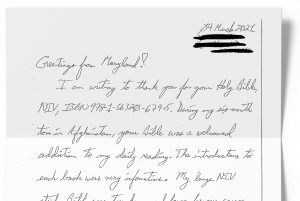 24 March 2021
Greetings from Maryland!
I am writing to thank you for your Holy Bible,
NIV, ISBN 978-1-56320-679-5. During my six month
tour in Afghanistan, your Bible was a welcomed
addition to my daily reading. The introductions to
each book was very informative. My large NIV